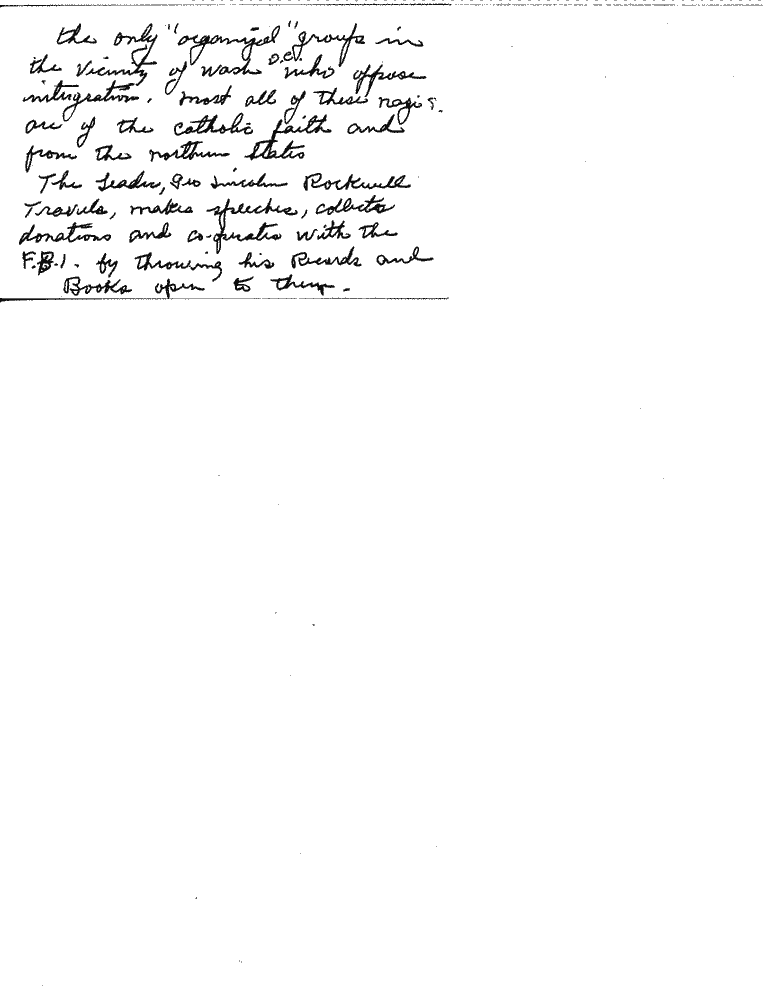 the only "organized" groups in
the Vicinity of Wash D.C. who oppose
intergration. Most all of these nazis.
are of the catholic faith and
from the northern States
The Leader, Geo Lincoln Rockwell
Travels, makes speeches, collects
donations and co-operates with the
F.B.I. by throwing his Records and
Books open to them.